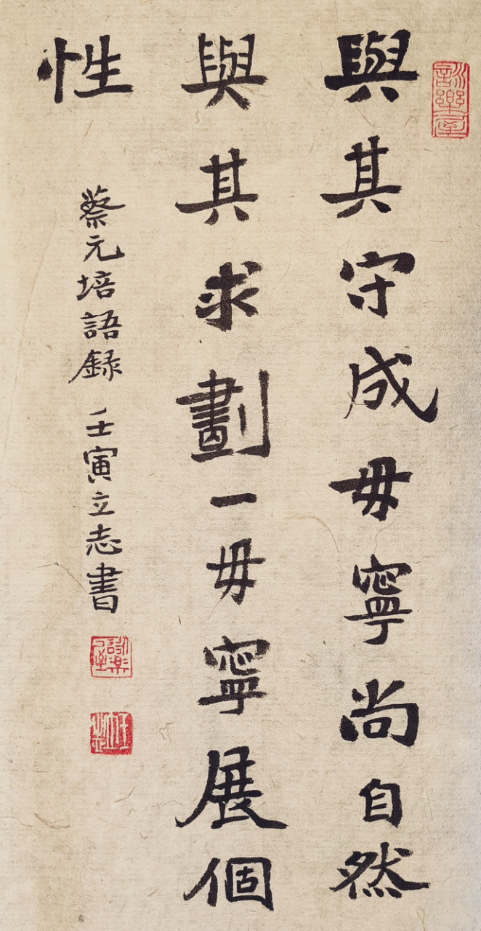 與其守成毋寧尚自然
與其求劃一毋寧展個
性
蔡元培語錄 壬寅立志書